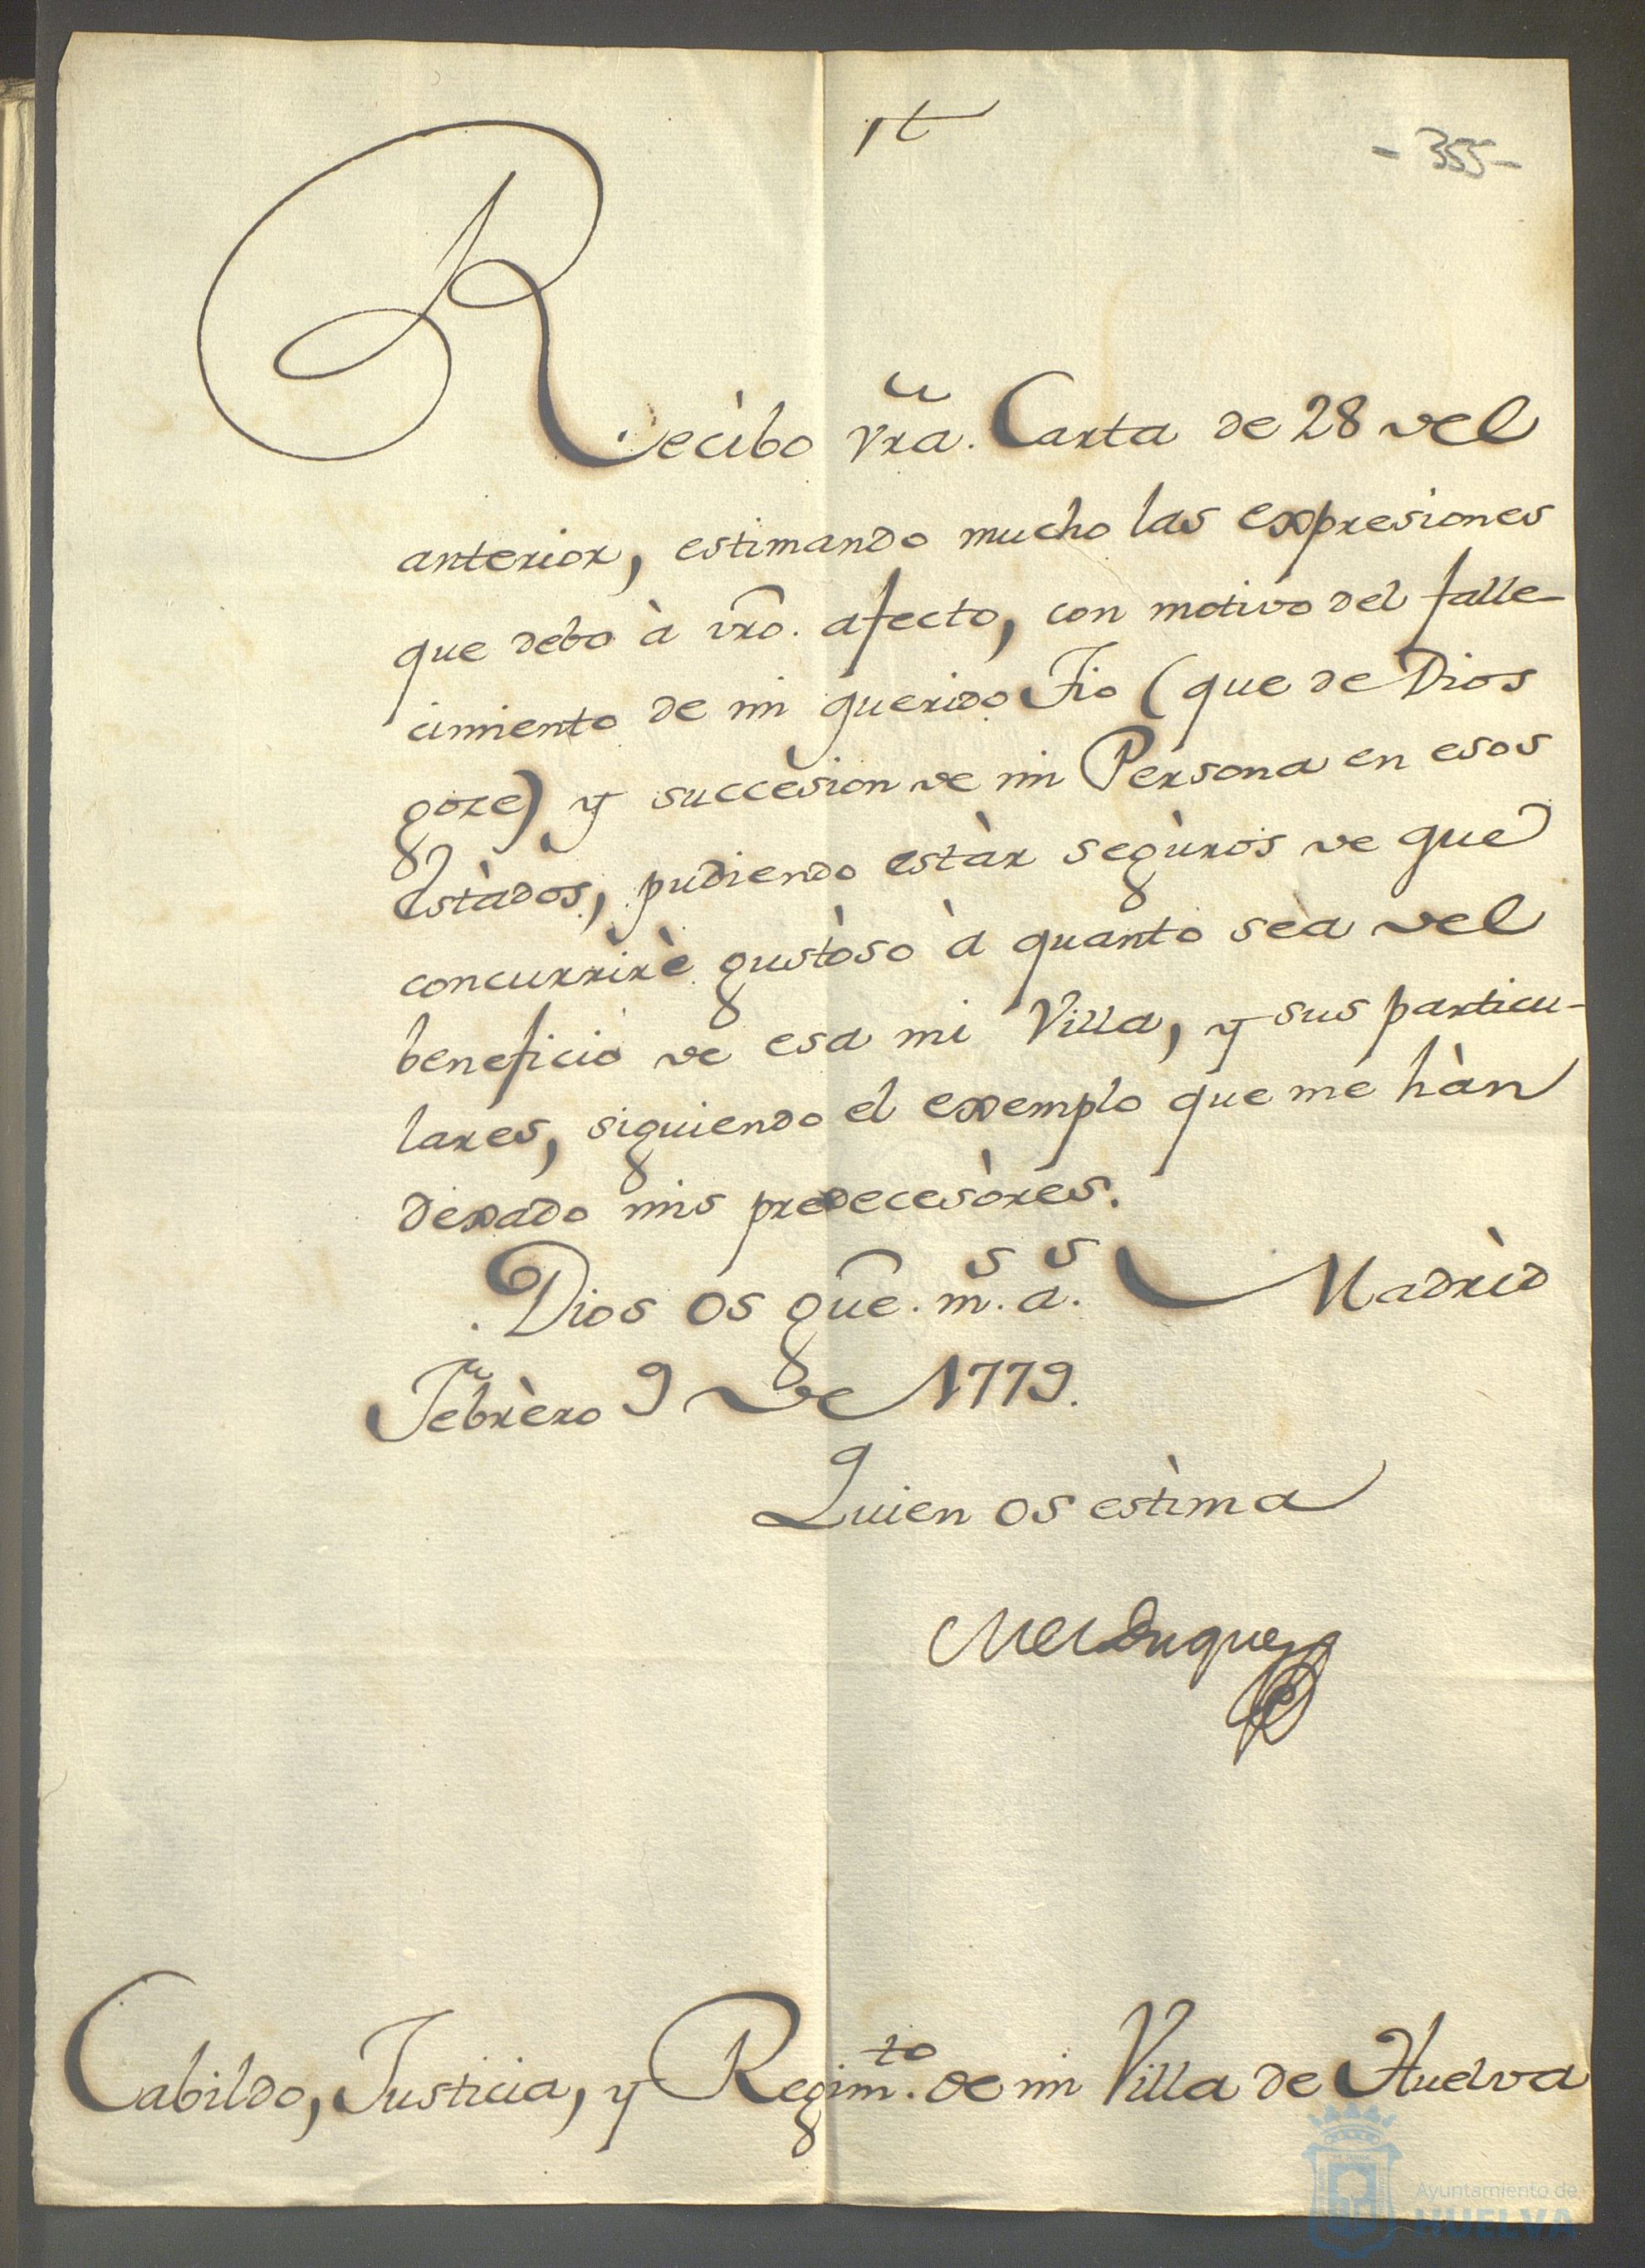 - 355 -
Recibo vra. Carta de 28 del
anterior, estimando mucho las expresiones
que debo à vro. afecto, con motivo del falle-
cimiento de mi querido Tio (que de Dios
goze) y succèsion de mi Persona en esos
Estàdos, pudiendo estàr segùros de que
concurrirè gustòso à quanto sèa del
beneficio de esa mi Villa, y sus particu-
lares, siguiendo el exemplo que me hàn
dexado mis predecesòres.
Dios os gue. ms. as. Madrìd
Febrèro 9 de 1779.
Quien os estìma
El Duque
Cabildo, Justicia, y Regimto. de mi Villa de Huelva
Ayuntamiento de
HUELVA